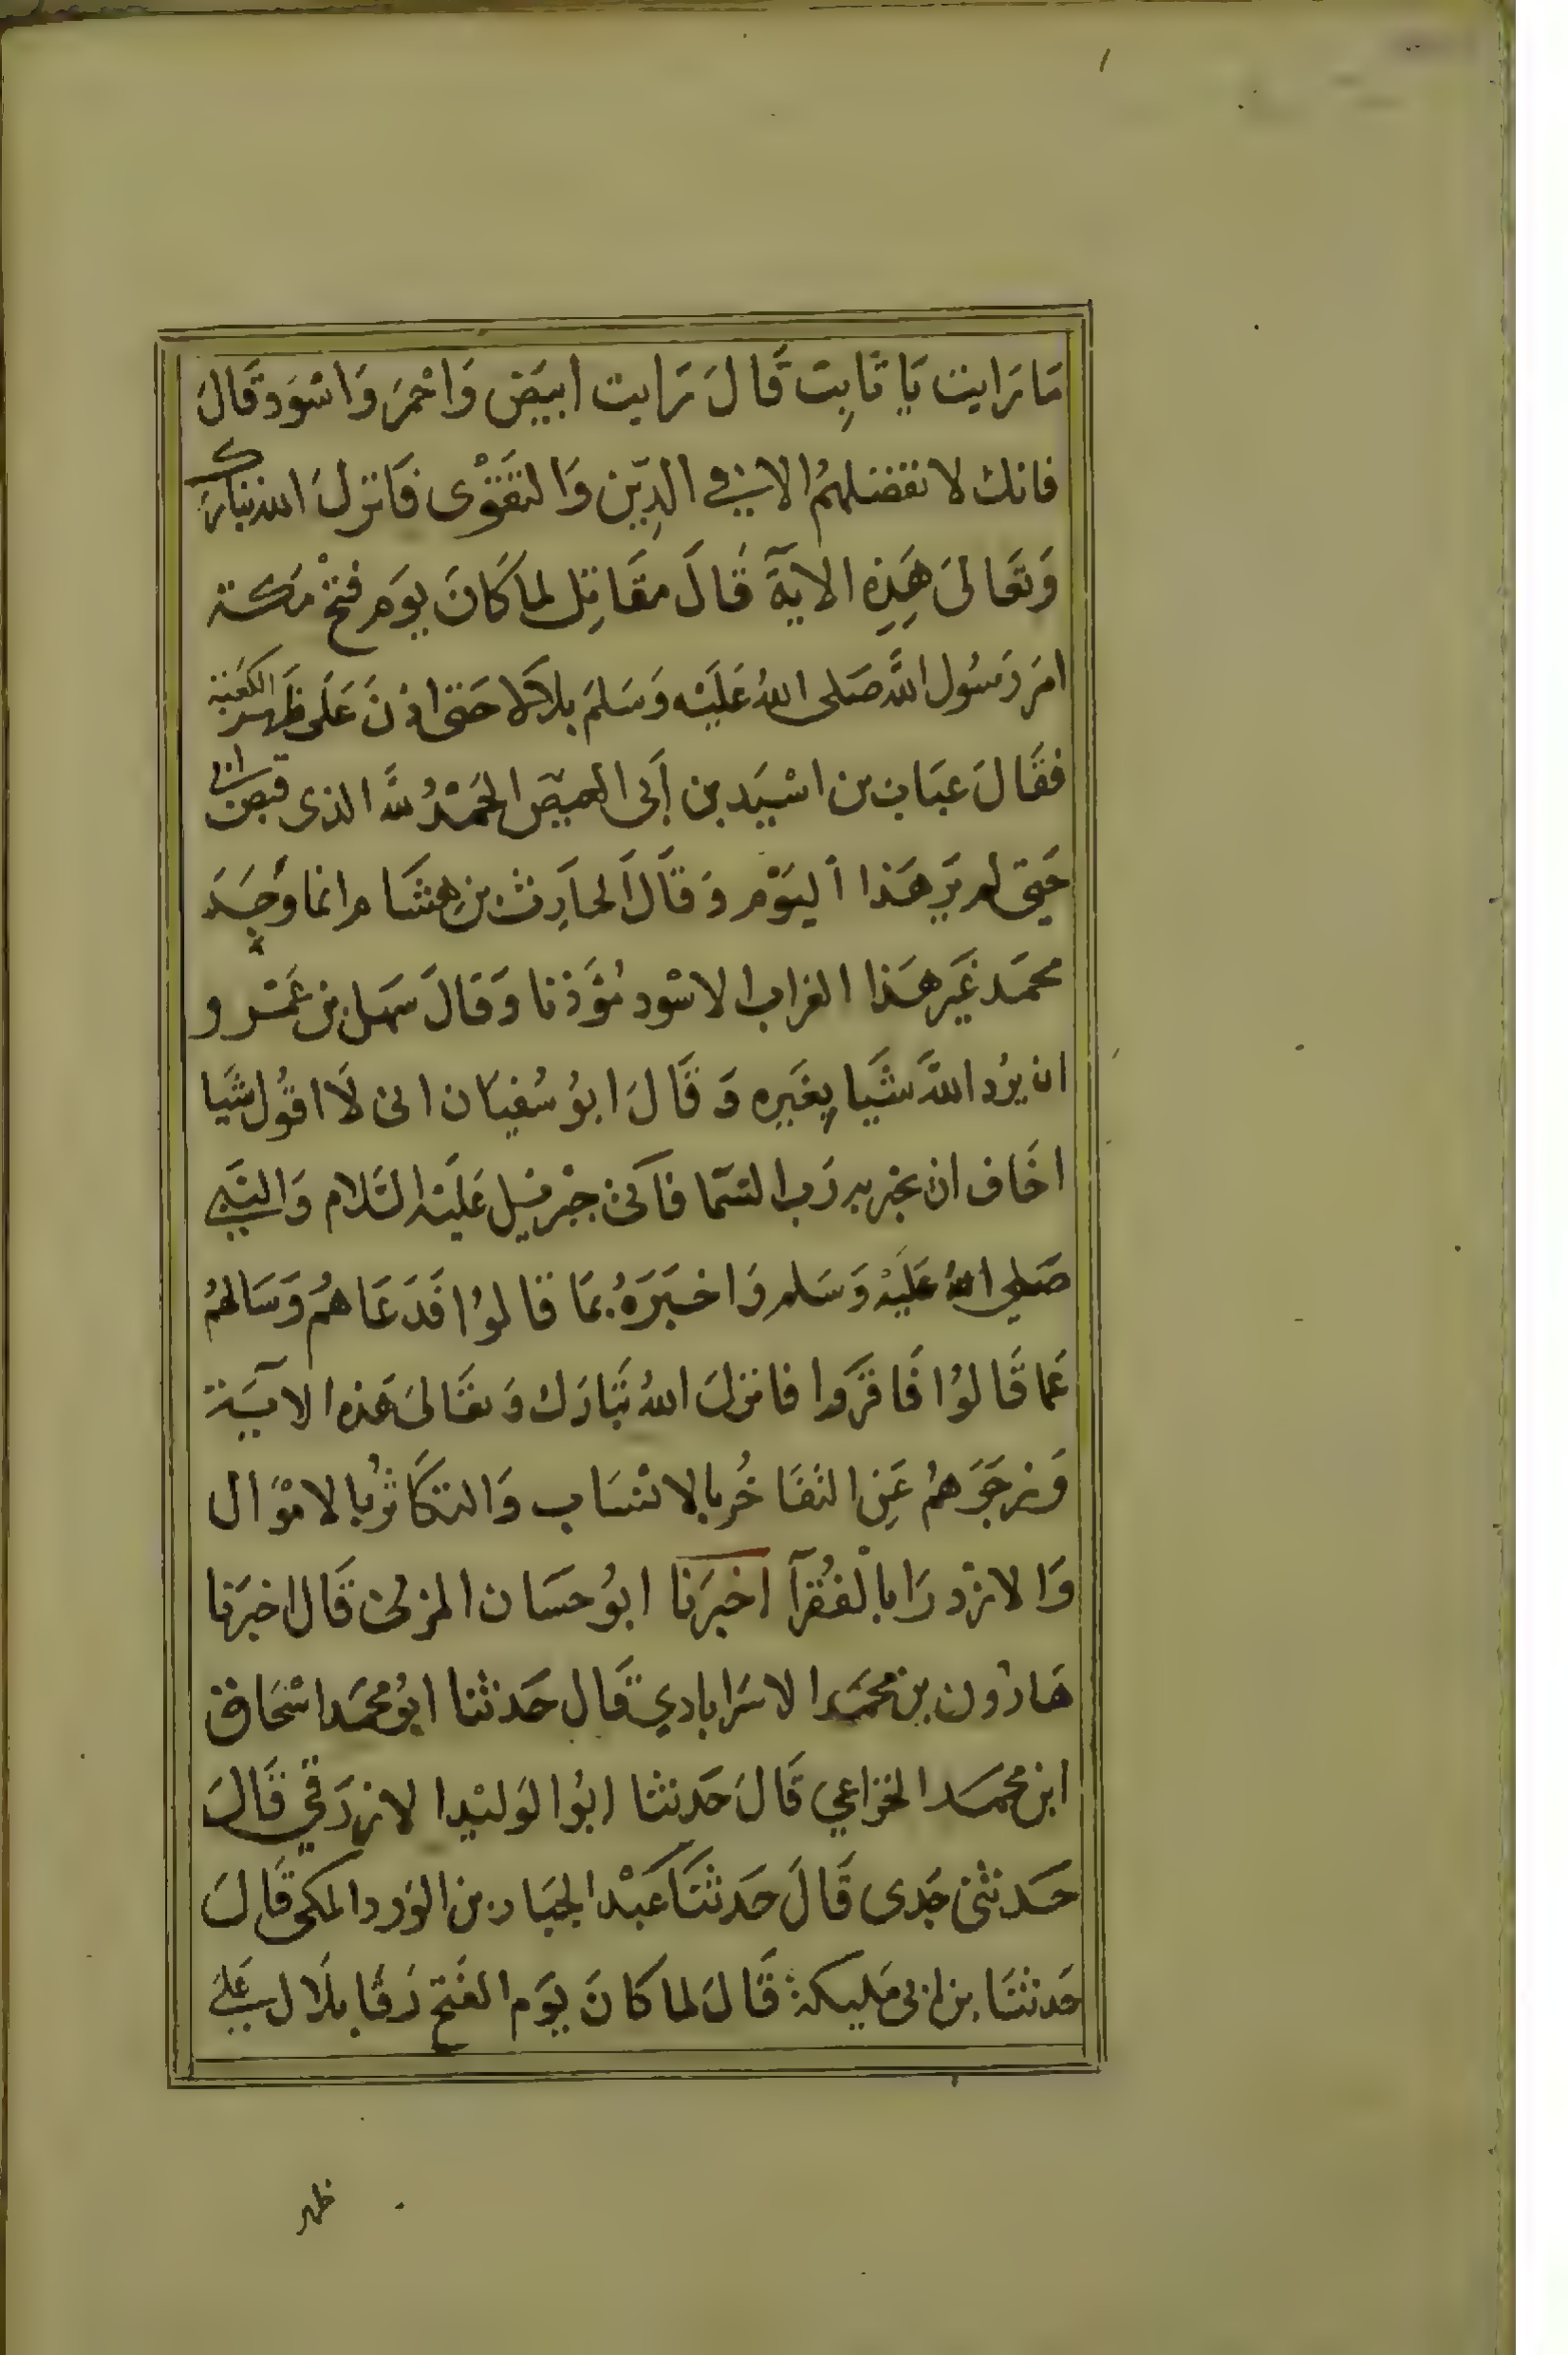 مَا رَايت يَا ثَابِت قَالَ رَايت ابيَض وَاحْمَر وَاسْوَد قَالَ
فانك لا تفضلهمُ الا في الدِّين وَالتقَوْى فَانزلَ الله تبارك
وَتعَالىَ هَذِهِ الايَةَ قَالَ مقَاتِل لما كَانَ يوَم فتْح مَكـة
امَر رَسُول اللَّه صَلى اللهُ عَليْه وَسَلمَ بلالا حَتى اذنَ عَلى ظَهر الكعَبة
فقَالَ عتَاب بن اسْيَد بن أبى العيصَ الحَمْدُ للَّه الذى قبض ابى
حَتى لم يَر هَذا اليَوْم وَقاَلَ الحارِث بن هِشَام انما وَجَدَ
محمَد غَير هَذا الغراب الاسْود مُؤَذنا وَقالَ سَهل بن عَمْرو
ان يرُد اللَّه شَيا يغَيره وَقَالَ ابوُ سُفيَان انى لَا اقوُل شَيا
اخَاف ان يخبر به رَب السَما فَاتى جبْرئيل عَليْه السَلام وَالنبَي
صَلى اللهُ عَليْه وَسَلم وَاخـبَرَهُ بمَا قالوُا فَدَعَاهُمْ وَسَالهُمْ
عَما قَالوُا فَاقرَوا فانزلَ اللهُ تبَارَك وَتعَالىَ هَذه الايَـة
وَزجَرَهمُ عَنِ التفَاخُر بالانْسَاب وَالتكَاثُر بالامْوَال
وَالازْدرَا بالفُقرآ اخبَرَنا ابوُ حسَان المزكى قَال اخبرَنا
هَارُون بن محمَد الاسترابادي قَال حَدثنا ابوُ محمَد اسْحَاق
ابن محمَد الخزاعي قَالَ حَدثنا ابوُا لوَليْد الازرَقي قَالَ
حَدثنى جَدى قَالَ حَدثنَا عَبْد الجبَار بن الوَرد المكى قَالَ
حَدثنَا بن ابى مَليكة قَالَ لما كَانَ يوَم الفَتح رَقا بلَال عَلى
ظهر